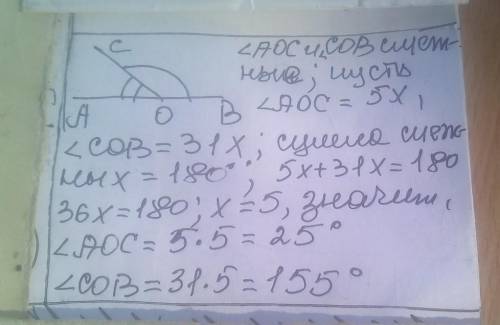 C
A O B
∠AOC и ∠COB смеж-
ные; пусть
∠AOC = 5x,
∠COB = 31x; сумма смеж-
ных = 180°; 5x+31x=180
36x=180; x=5, значит,
∠AOC = 5·5=25°
∠COB = 31·5=155°